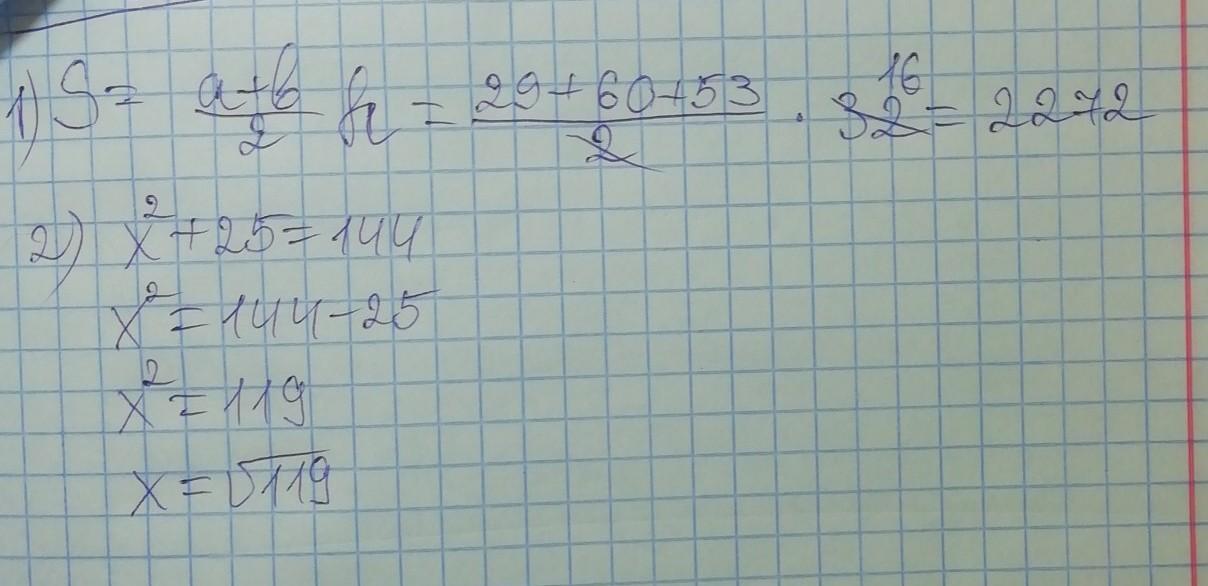 1) S = a+b/2 h = 29+60+53/2 · 32 16 = 2272
2) x² + 25 = 144
x² = 144 - 25
x² = 119
x = √119